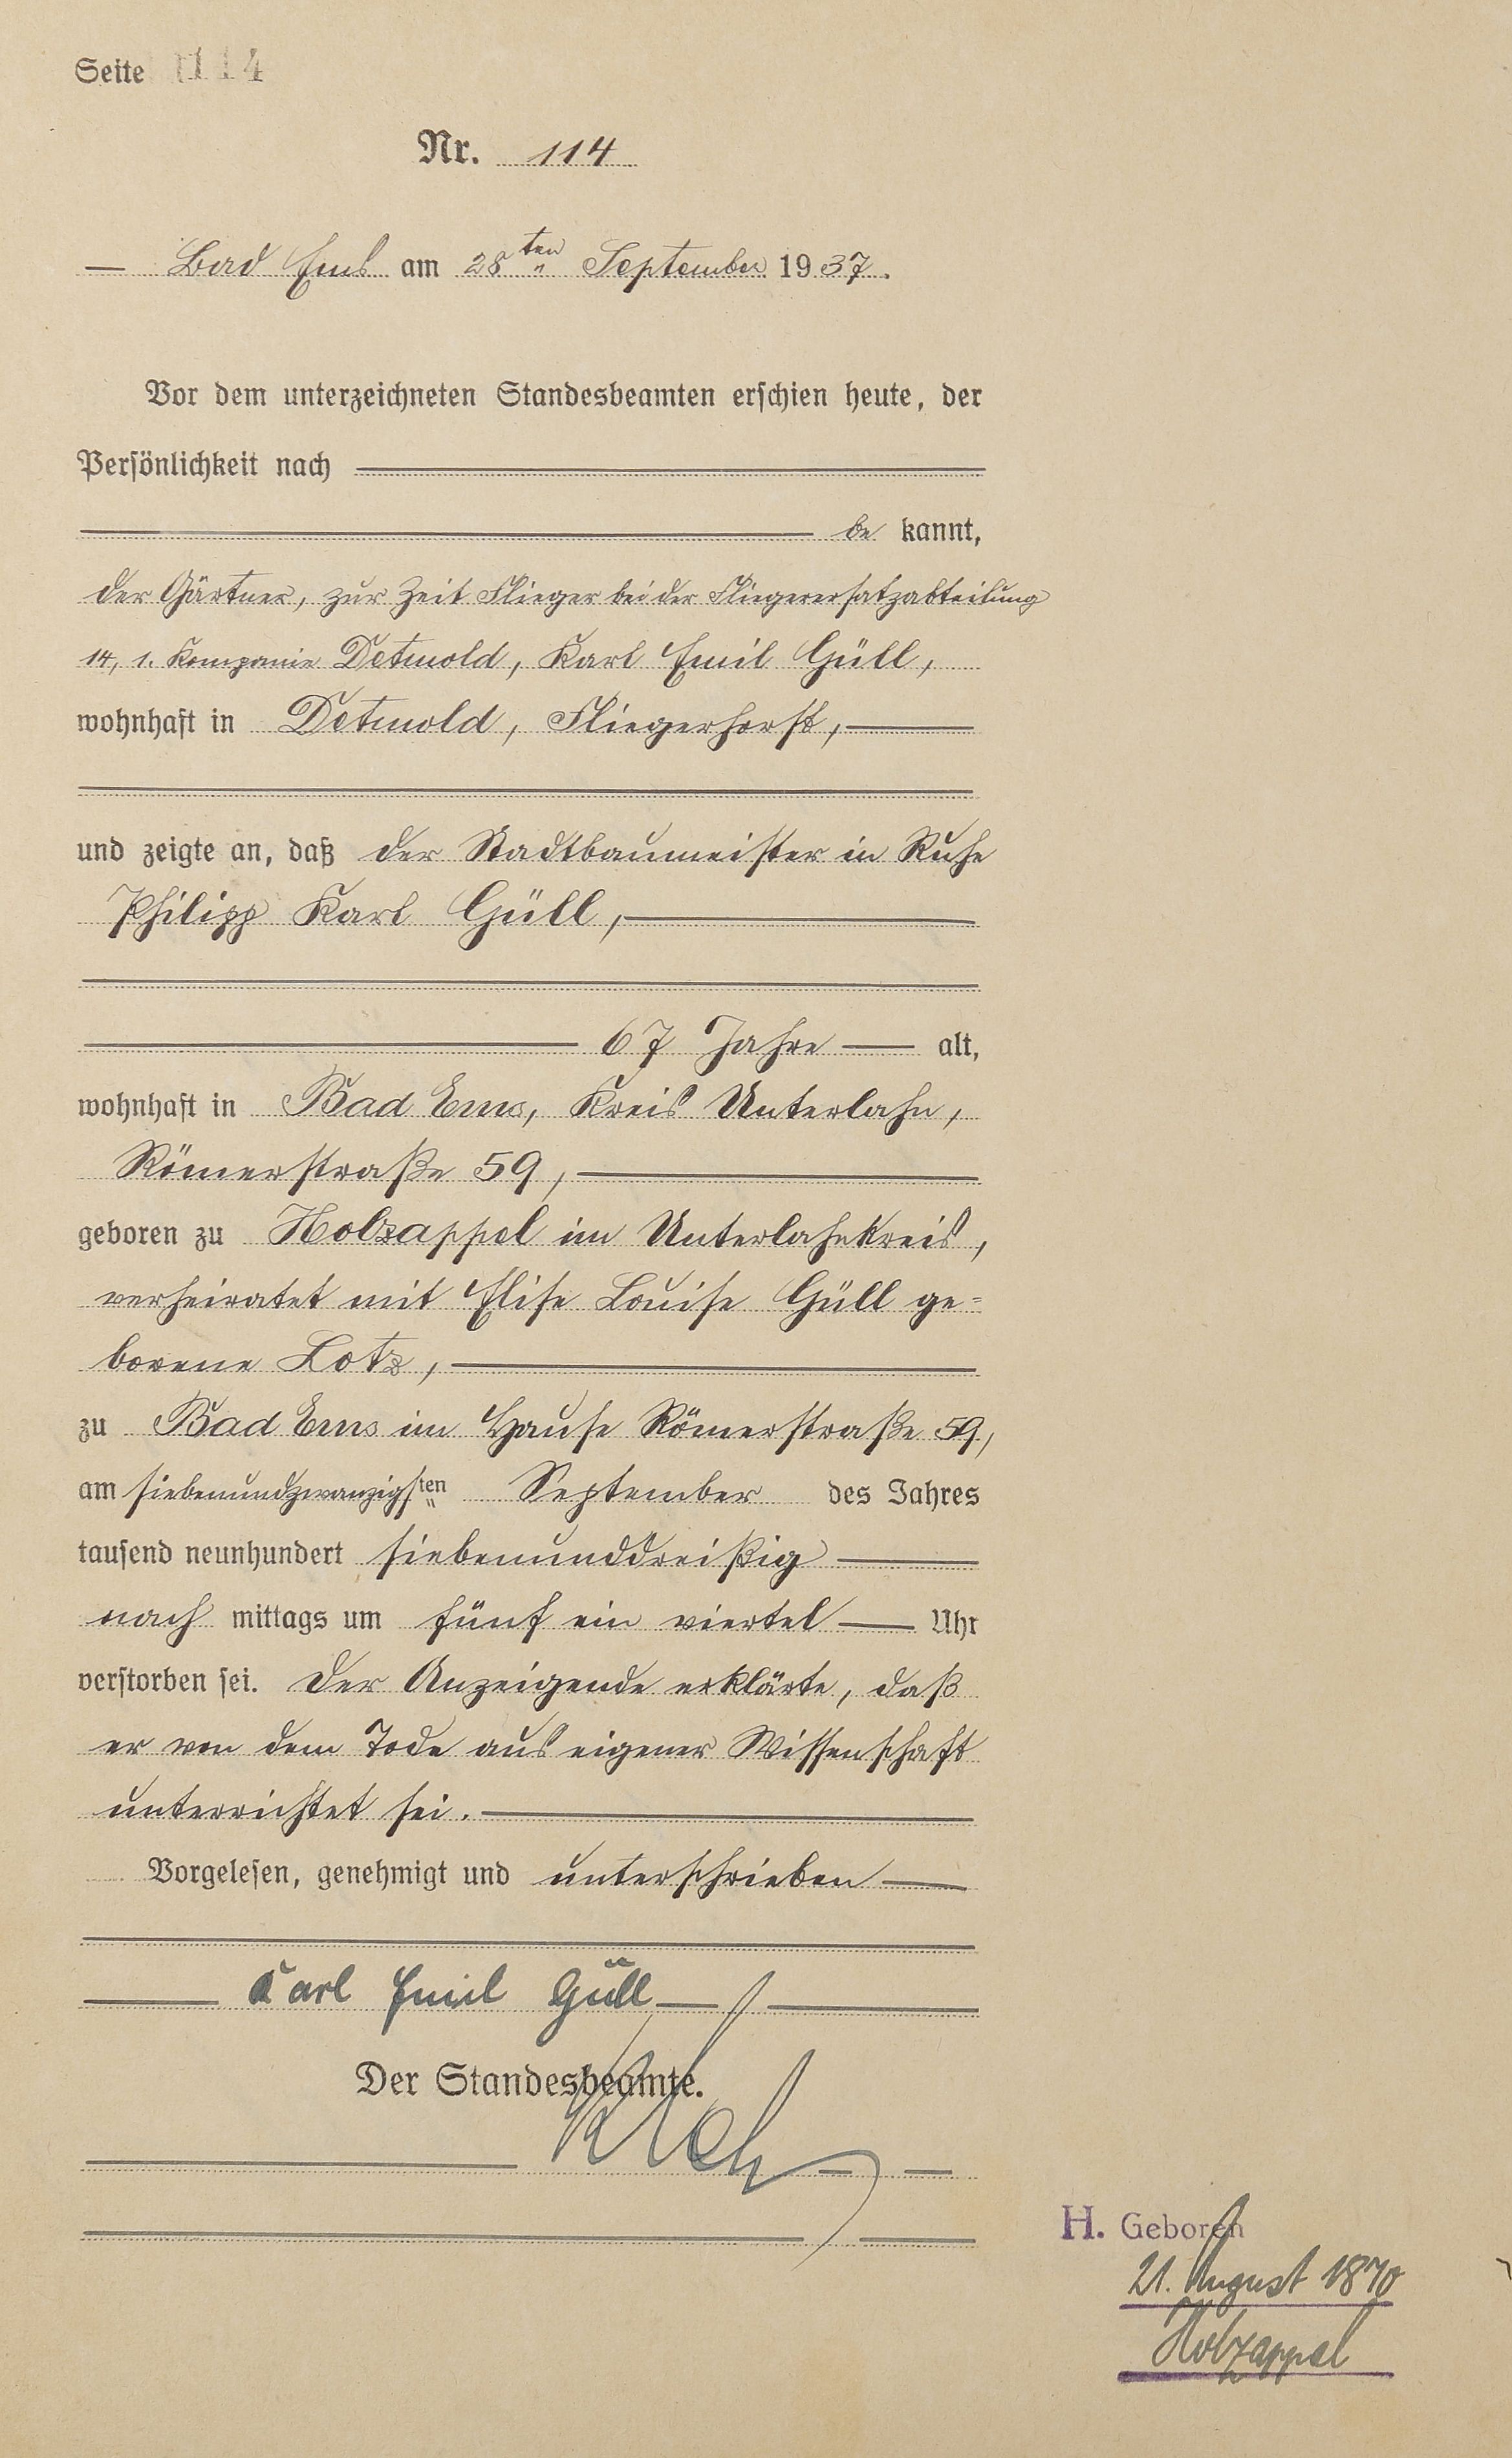 Seite 114
Nr. 114
— Bad Ems am 28ten September 1937.
Vor dem unterzeichneten Standesbeamten erschien heute, der
Persönlichkeit nach
be kannt,
der Gärtner, zur Zeit Flieger bei der Fliegerersatzabteilung
14, 1. Kompanie Detmold, Karl Emil Güll,
wohnhaft in Detmold, Fliegerhorst,
und zeigte an, daß der Stadtbaumeister in Ruhe
Philipp Karl Güll,
67 Jahre alt,
wohnhaft in Bad Ems, Kreis Unterlahn,
Römerstraße 59,
geboren zu Holzappel im Unterlahnkreis,
verheiratet mit Elise Louise Güll ge=
borene Lotz,
zu Bad Ems im Hause Römerstraße 59,
am siebenundzwanzigsten September des Jahres
tausend neunhundert siebenunddreißig
nach mittags um fünf ein viertel Uhr
verstorben sei. Der Anzeigende erklärte, daß
er von dem Tode aus eigener Wissenschaft
unterrichtet sei.
Vorgelesen, genehmigt und unterschrieben
Karl Emil Güll
Der Standesbeamte.
H. Geboren
21. August 1870
Holzappel